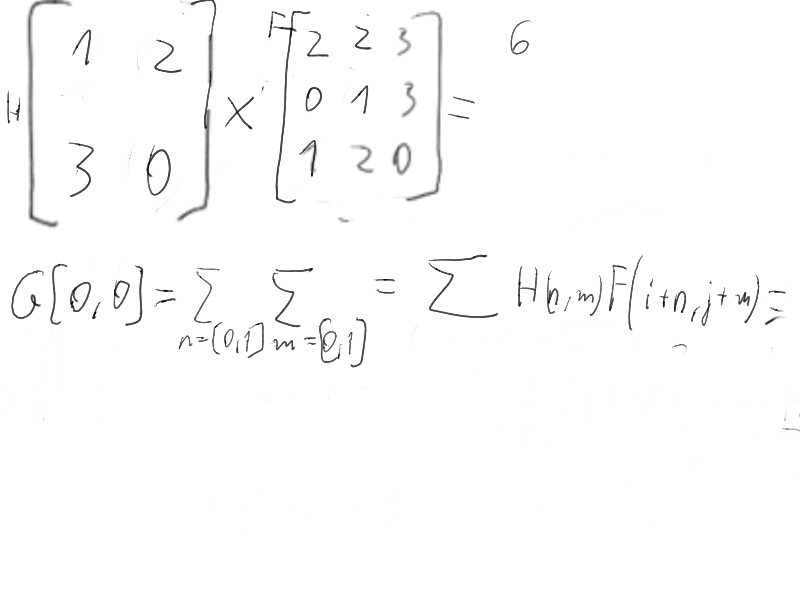 H [1 2 3 0] × F [2 2 3 0 1 3 1 2 0] = 6
G[0,0] = Σ n=[0,1] Σ m=[0,1] = Σ H(n,m)F(i+n,j+m) =